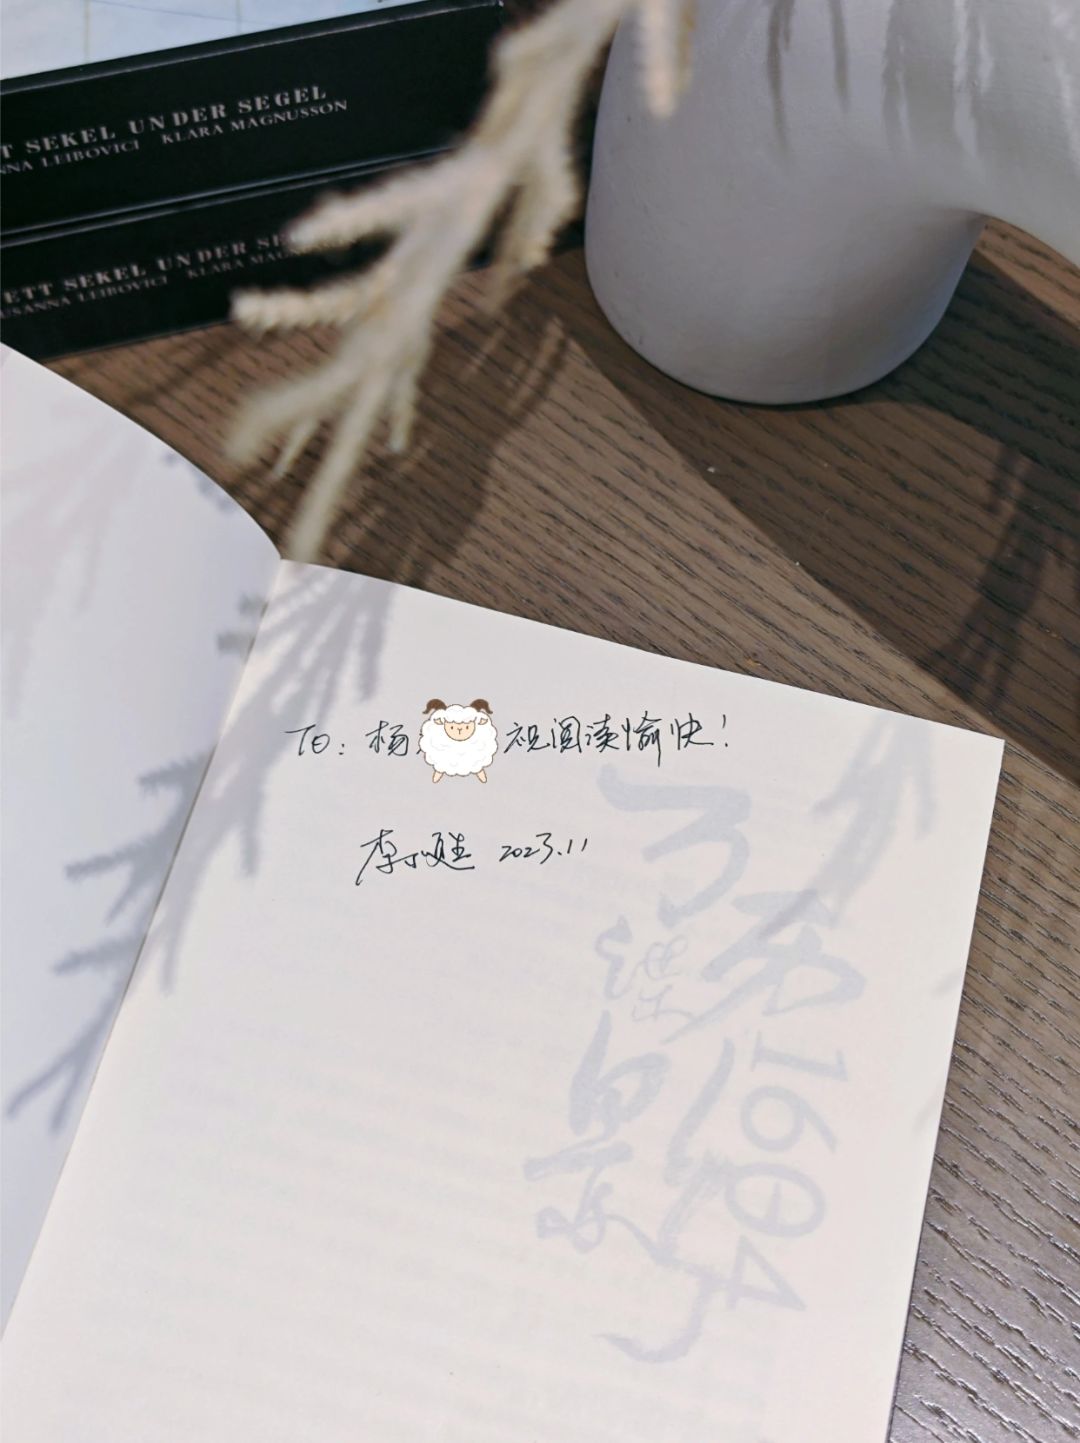 T SEKEL UNDER SEGEL
NNA LEIBOVICI KLARA MAGNUSSON
ETT SEKEL UNDER SE
USANNA LEIBOVICI KLARA MAGN
To: 杨 祝阅读愉快!
李 2023.11